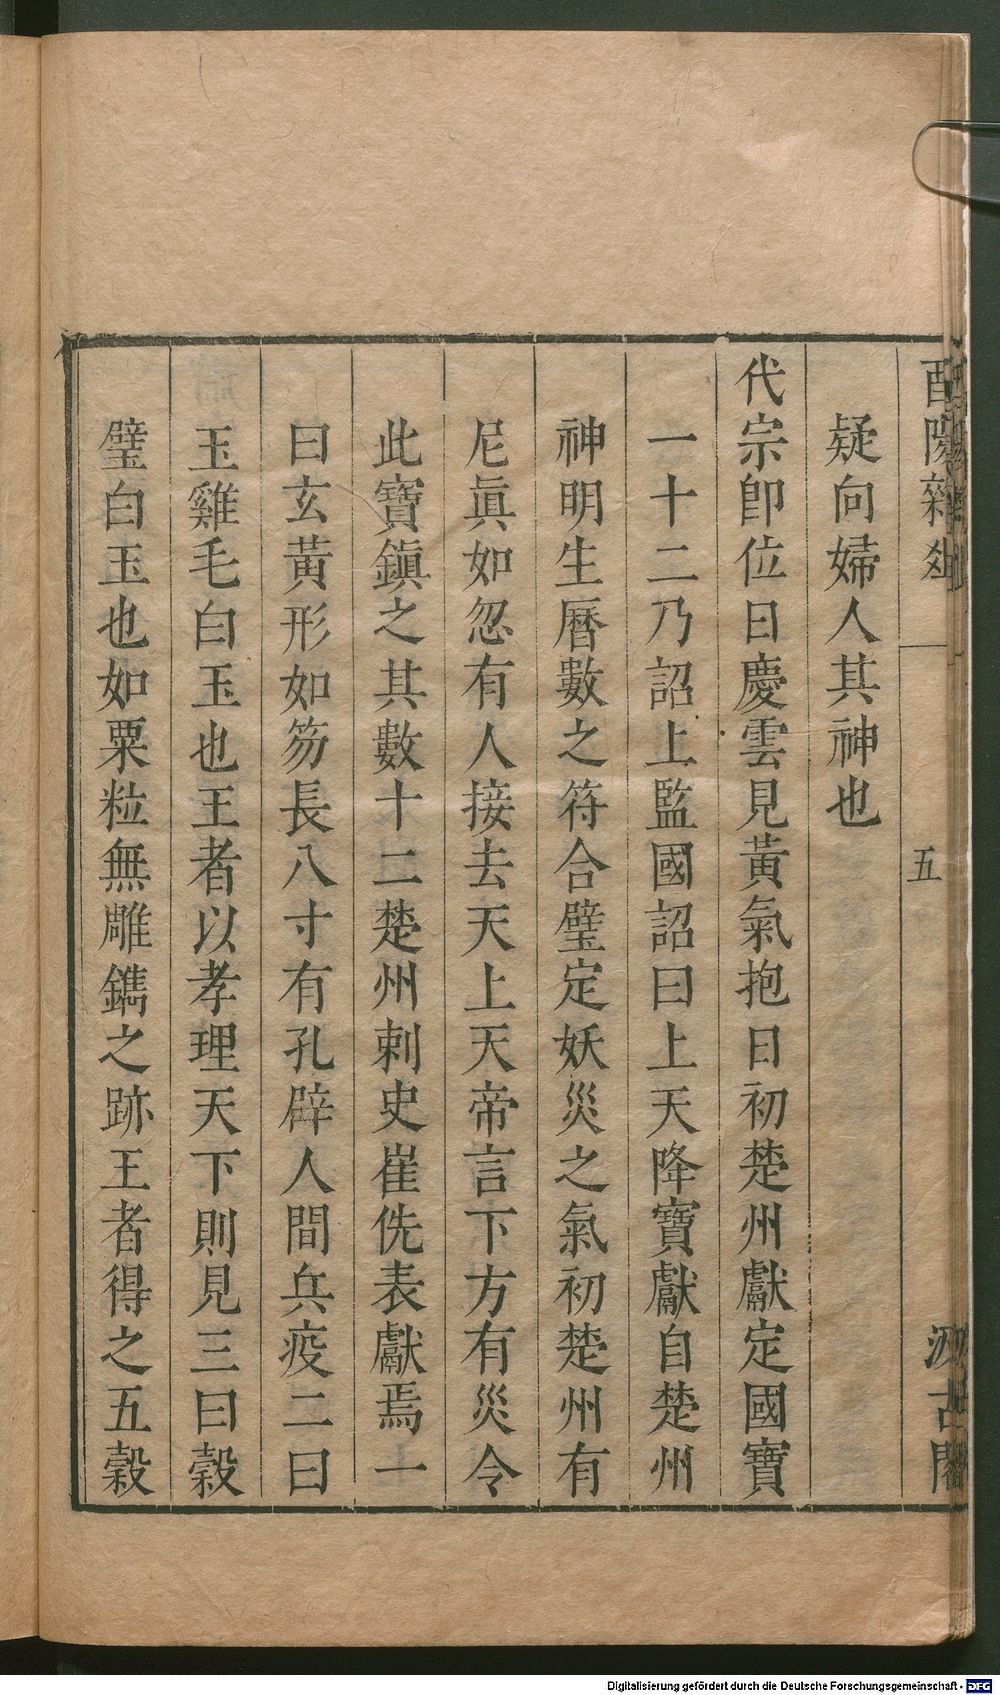 酉陽雜俎 一 五 汲古閣
疑向婦人其神也
代宗卽位日慶雲見黃氣抱日初楚州獻定國寶
一十二乃詔上監國詔曰上天降寶獻自楚州
神明生曆數之符合璧定妖災之氣初楚州有
尼眞如忽有人接去天上天帝言下方有災令
此寶鎭之其數十二楚州刺史崔侁表獻焉一
曰玄黃形如笏長八寸有孔辟人間兵疫二曰
玉雞毛白玉也王者以孝理天下則見三曰穀
璧白玉也如粟粒無雕鐫之跡王者得之五穀
Digitalisierung gefördert durch die Deutsche Forschungsgemeinschaft - DFG